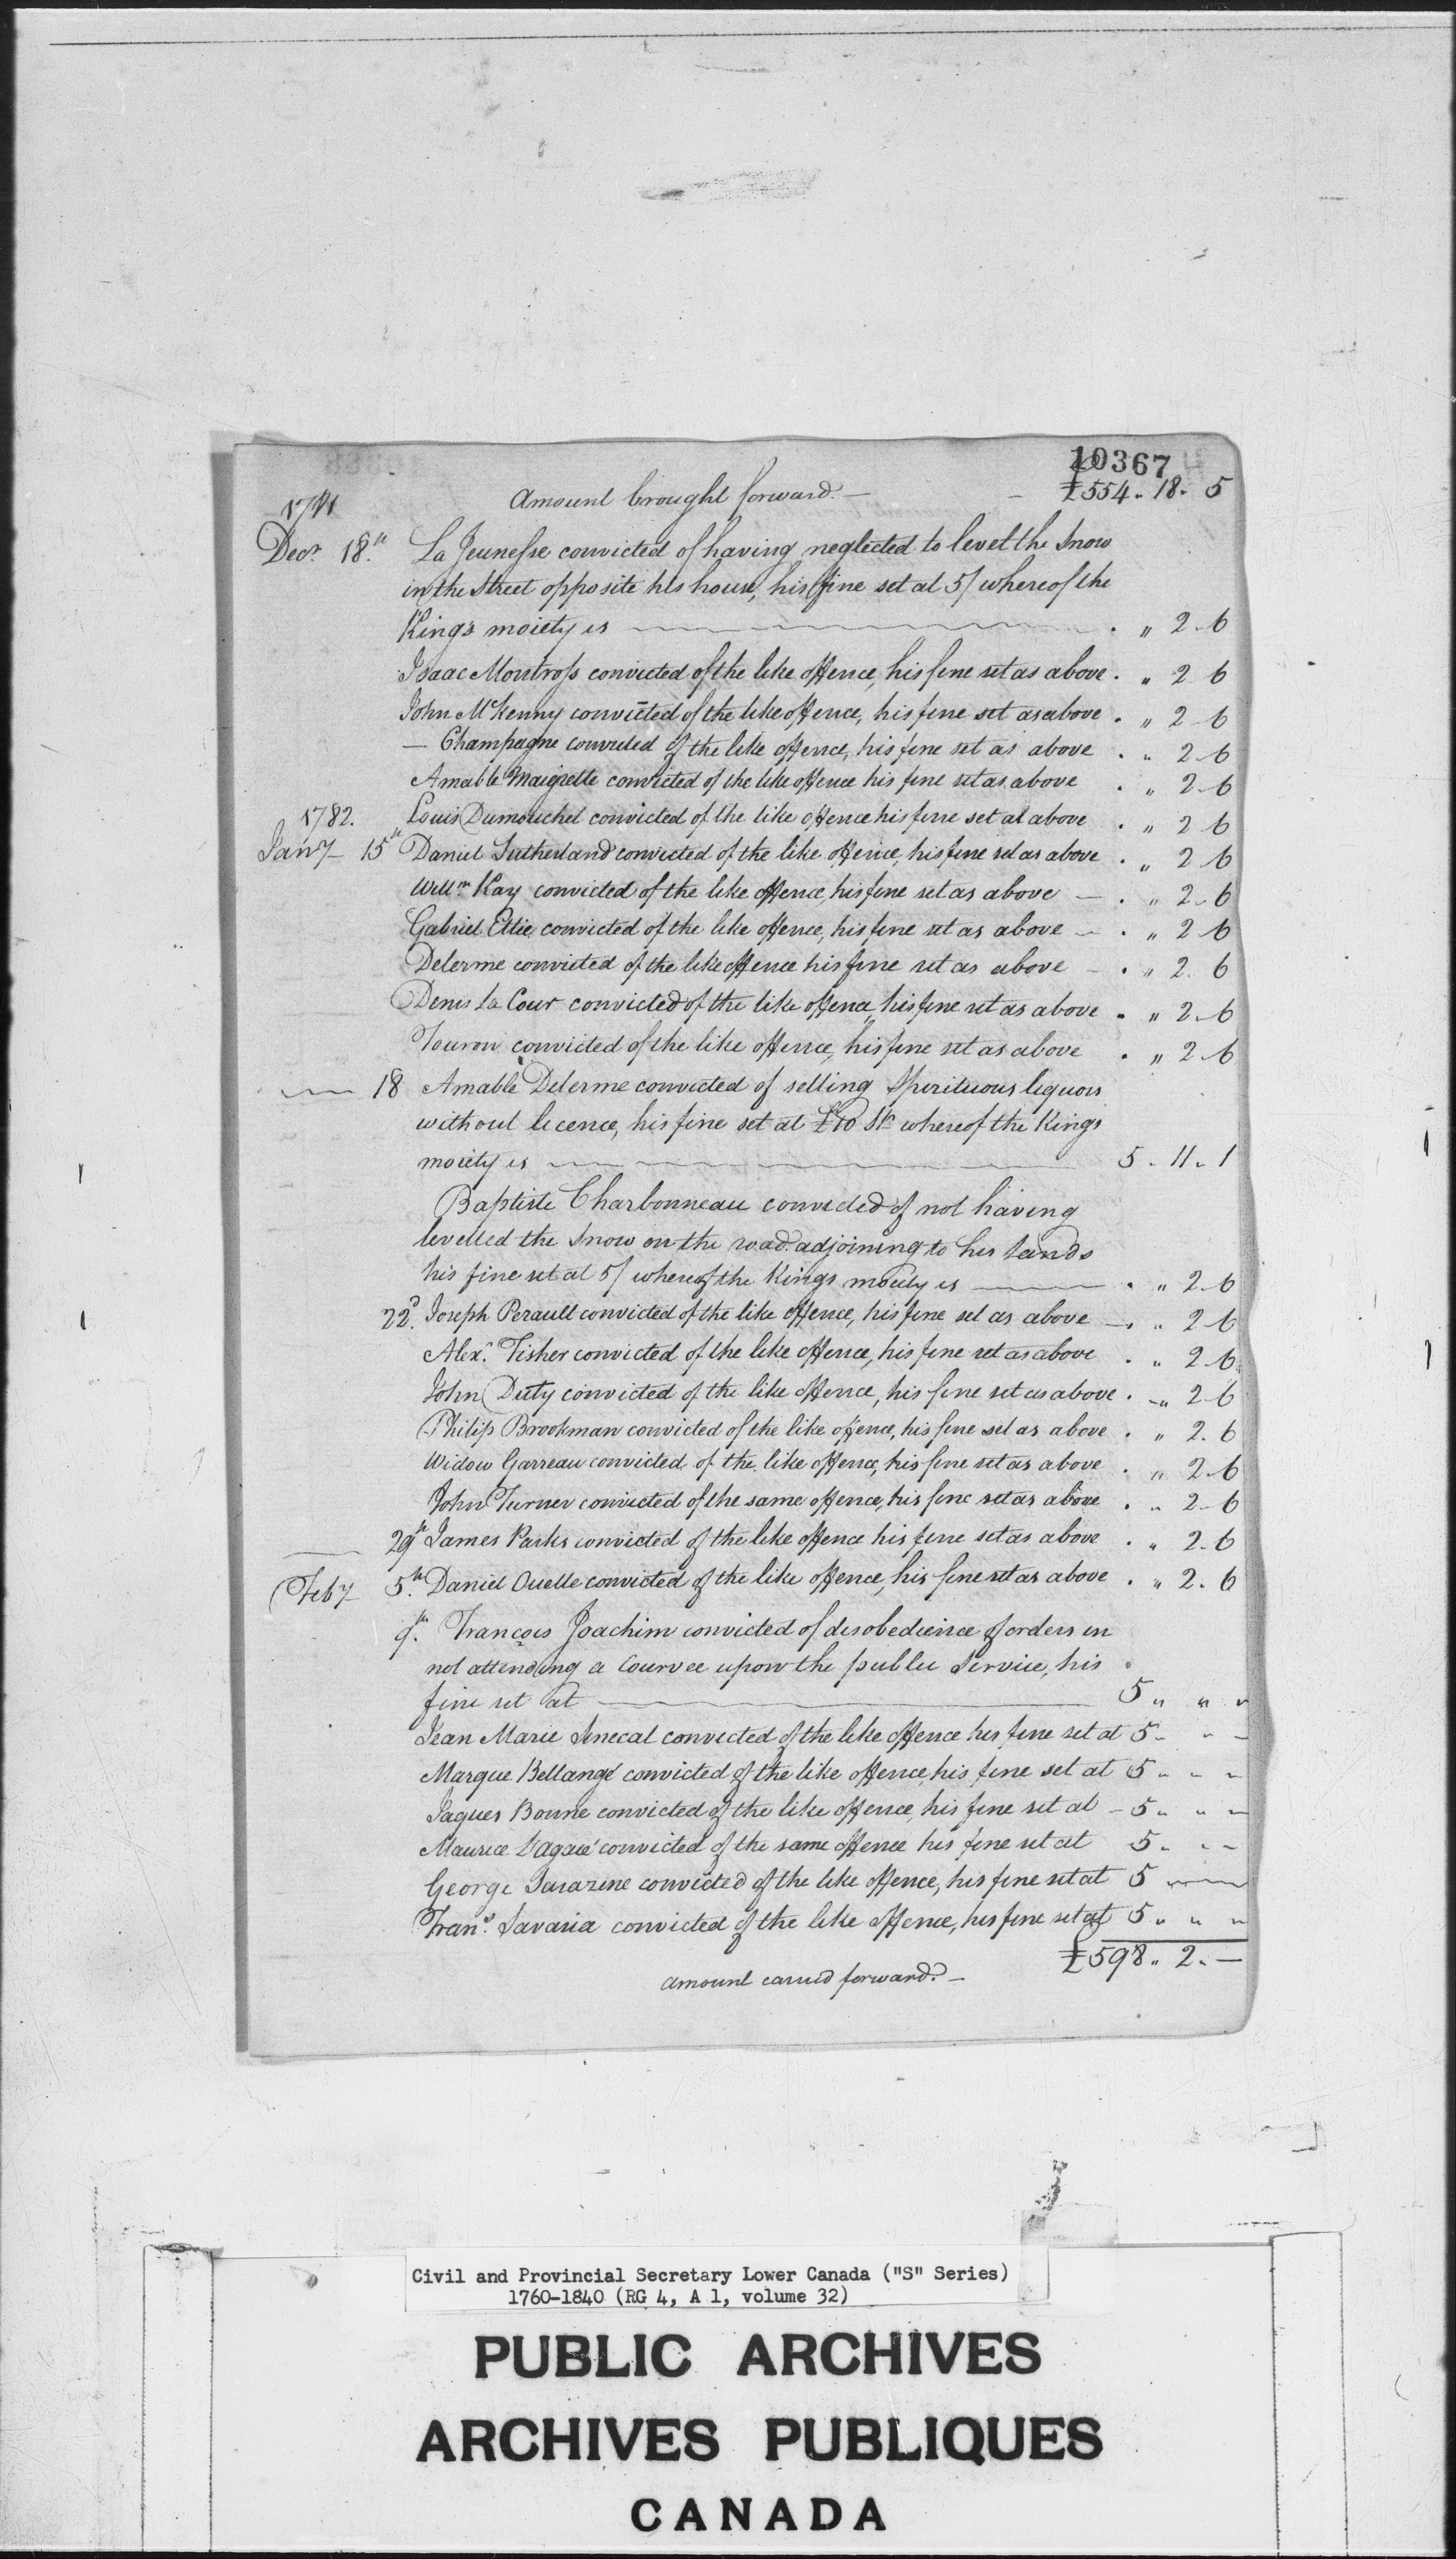 10367
Amount brought forward. — £554. 18. 5
1781
Decr. 18th. La Jeunesse convicted of having neglected to level the Snow
in the Street opposite his house, his fine set at 5/ whereof the
King's moiety is . „ 2. 6
Isaac Montross convicted of the like offence, his fine set as above . „ 2 6
John McKenny convicted of the like offence, his fine set as above . „ 2 6
— Champagne convicted of the like offence, his fine set as above . „ 2. 6
Amable Maigrette convicted of the like offence his fine set as above . „ 2. 6
1782. Louis Dumouchel convicted of the like offence his fine set as above . „ 2 6
Jany 15th Daniel Sutherland convicted of the like offence, his fine set as above . „ 2 6
Willm Kay convicted of the like offence, his fine set as above — . „ 2. 6
Gabriel convicted of the like offence, his fine set as above — . „ 2 6
Delerme convicted of the like offence his fine set as above — . „ 2. 6
Denis La Cour convicted of the like offence, his fine set as above . „ 2. 6
Touron convicted of the like offence, his fine set as above . „ 2. 6
— 18 Amable Delerme convicted of selling Spirituous liquors
without licence, his fine set at £10 Stg whereof the Kings
moiety is 5. 11. 1
Baptiste Charbonneau convicted of not having
levelled the Snow on the road adjoining to his lands
his fine set at 5/ whereof the Kings moiety is — . „ 2. 6
22d. Joseph Perault convicted of the like offence, his fine set as above — . „ 2 6
Alexr. Fisher convicted of the like offence, his fine set as above . „ 2 6
John Duty convicted of the like offence, his fine set as above . „ 2 6
Philip Brookman convicted of the like offence, his fine set as above . „ 2. 6
Widow Garreau convicted of the like offence, his fine set as above . „ 2. 6
John Turner convicted of the same offence, his fine set as above . „ 2. 6
— 29th James Parks convicted of the like offence his fine set as above . „ 2. 6
Feby 5th. Daniel Ouelle convicted of the like offence, his fine set as above . „ 2. 6
9th. François Joachim convicted of disobedience of orders in
not attending a Courvee upon the public Service, his
fine set at — 5 „ „ „
Jean Marie Senecal convicted of the like offence his fine set at 5 - „ -
Marque Bellangé convicted of the like offence, his fine set at 5 „ „ „
Jaques Bonne convicted of the like offence, his fine set at — 5 „ „ „
Maurice convicted of the same offence his fine set at 5. - -
George Sarazine convicted of the like offence, his fine set at 5 „ „
Frans. Savaria convicted of the like offence, his fine set at 5 „ „ „
£598. 2. —
amount carried forward. —
Civil and Provincial Secretary Lower Canada ("S" Series)
1760-1840 (RG 4, A 1, volume 32)
PUBLIC ARCHIVES
ARCHIVES PUBLIQUES
CANADA